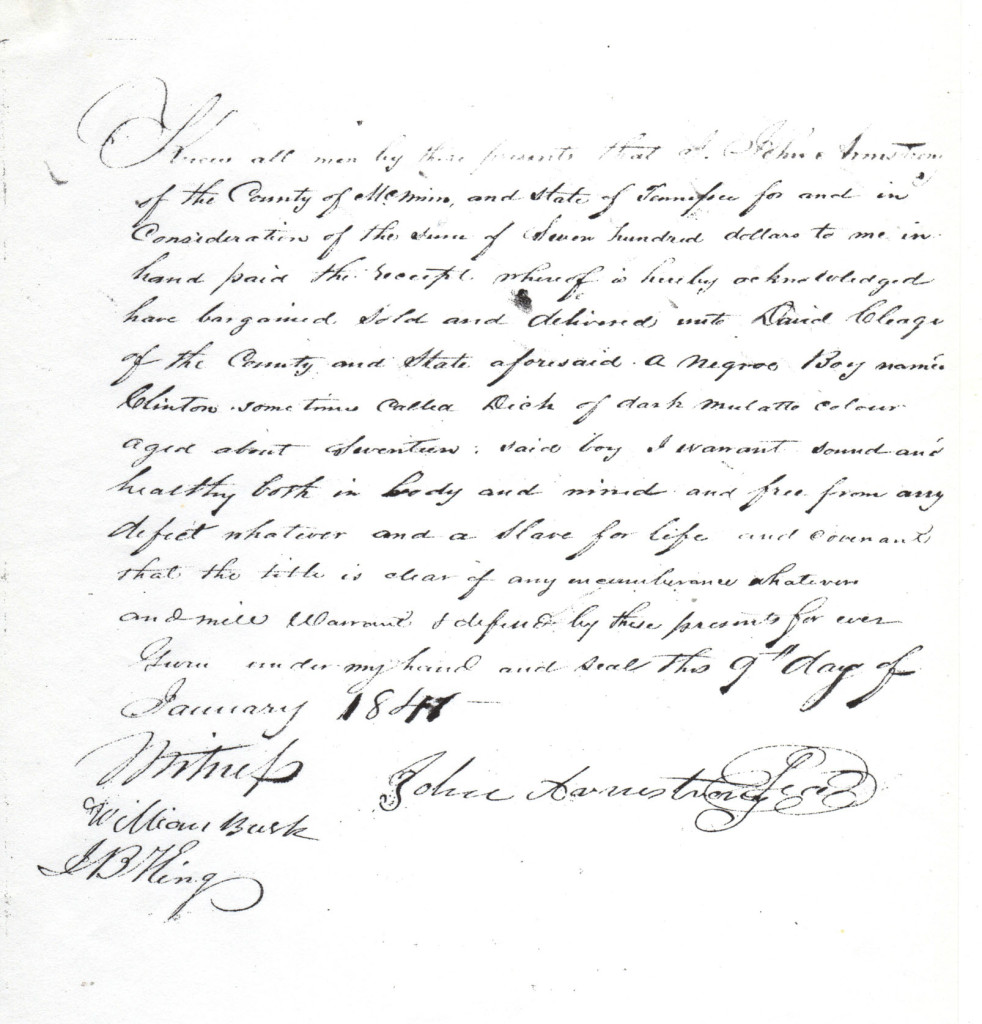 Know all men by these presents that I, John Armstrong
of the County of McMinn, and State of Tennessee for and in
Consideration of the sum of Seven hundred dollars to me in
hand paid the receipt whereof is hereby acknowledged
have bargained sold and delivered unto David Cleage
of the County and State aforesaid a Negroe Boy named
Clinton sometimes called Dick of dark mulatto colour
aged about Seventeen; said boy I warrant sound and
healthy both in body and mind and free from any
defect whatever and a Slave for life and covenant
that the title is clear of any incumberance whatever
and will Warrant & defend by these presents for ever
Given under my hand and seal this 9th day of
January 1841
Witness
John Armstrong Seal
William Burk
J B King